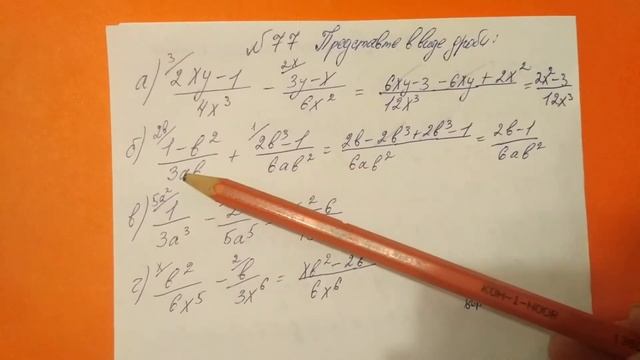 №77 Представьте в виде дроби:
а) ³⁄ (2xy-1)/(4x³) - ²ˣ⁄ (3y-x)/(6x²) = (6xy-3-6xy+2x²)/(12x³) = (2x²-3)/(12x³)
б) ²ᵇ⁄ (1-b²)/(3ab) + ¹⁄ (2b³-1)/(6ab²) = (2b-2b³+2b³-1)/(6ab²) = (2b-1)/(6ab²)
в) ⁵ᵃ²⁄ 1/(3a³) - 2/(5a⁵)
г) ˣ⁄ b²/(6x⁵) - ²⁄ b/(3x⁶) = (xb²-2b)/(6x⁶)
KOH-I-NOOR